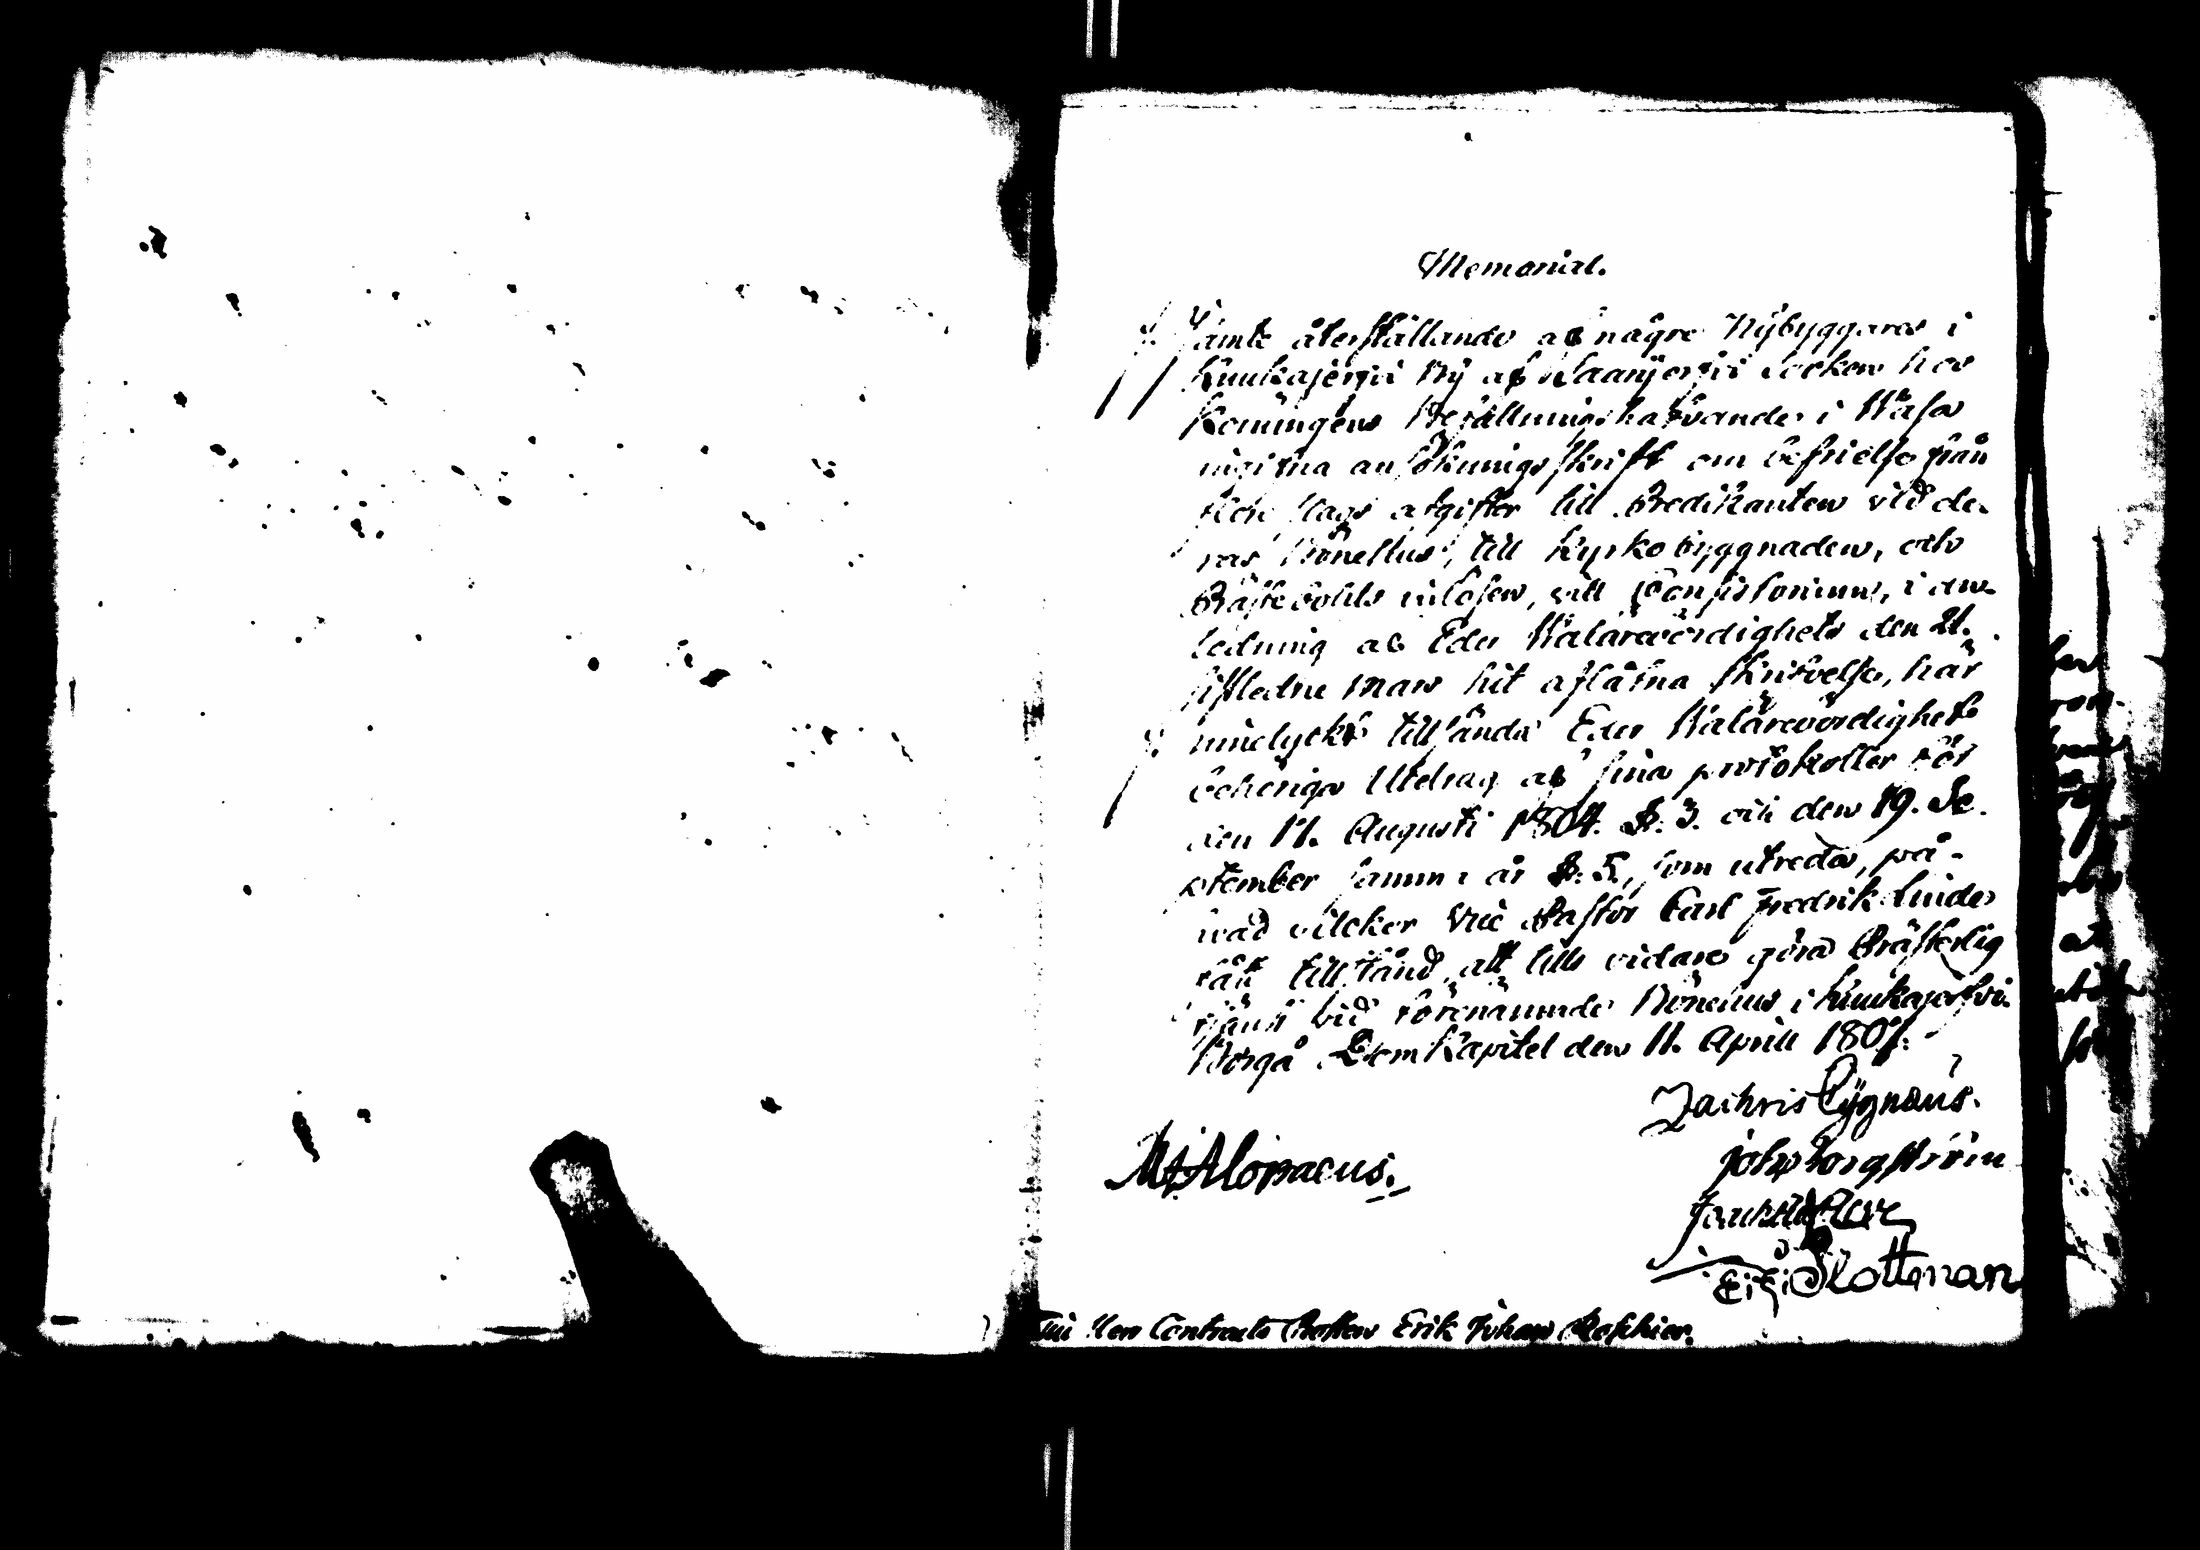 Memorial.
Jämte återställande af någre Nybyggares i
Kuukajerfvi By af Saarijerfvi Socken hos
Konungens Befallningshafvande i Wasa
ingifna ansökningsskrift om befrielse från
flere slags afgifter till Predikanten vid de-
ras Bönehus, till Kyrkobyggnaden, och
Prästebohls inlösen, vill Consistorium, i an-
ledning af Eder Wälärevördighets den 21.
sistledne Mars hit aflåtna skrifvelse, här
innelyckt tillsända Eder Wälärevördighet
behöriga Utdrag af sina protokoller för
den 11. Augusti 1804. §. 3. och den 19. Se-
ptember samma år §. 5, som utreda, på
hvad vilckor Vice Pastor Carl Fredrik Linder
fått tillstånd att tills vidare göra Prästerlig
tjenst vid förenämnde Bönehus i Kuukajerfvi.
Borgå DomKapitel den 11. April 1807.
Zachris Cygnæus.
Joh. Borgström
M. Alopaeus.
Er. G. Slottman
Till Herr Contracts Prosten Erik Johan Roschier.